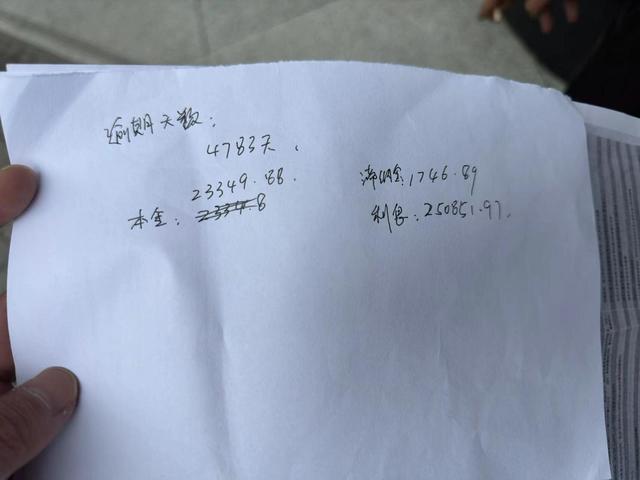 逾期天数:
4783天.
23349.88.
本金:
滞纳金:1746.89
利息:250851.97.